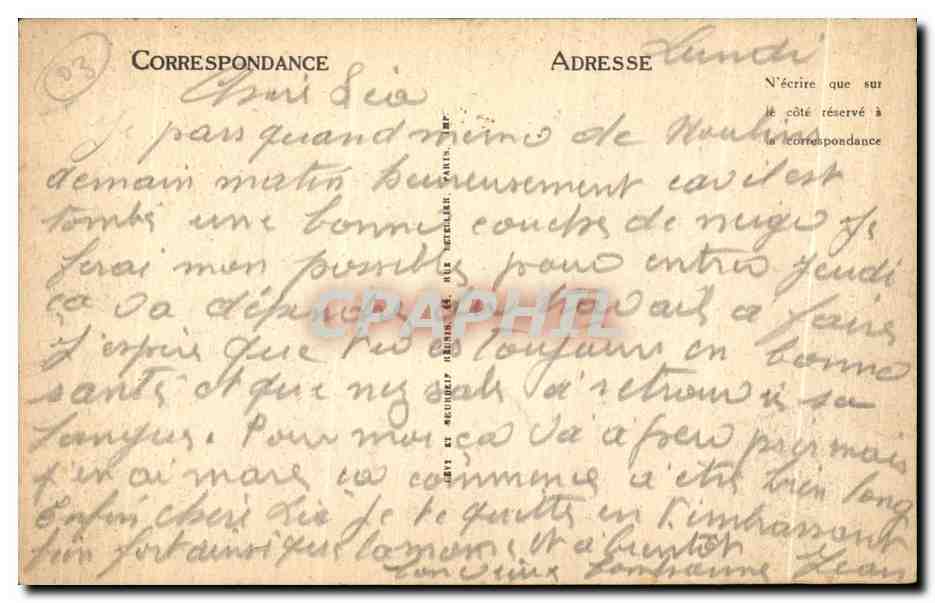 03
CORRESPONDANCE
ADRESSE
Lundi
N'écrire que sur
le côté réservé à
la correspondance
Cheri Lea
Je pars quand meme de Moulins
demain matin heureusement car il est
tombé une bonne couche de neige Je
ferai mon possible pour entrer jeudi
ça va dépendre du travail a faire
J'espère que tu as toujours en bonne
santé et que nez sale a retrouvé sa
langue. Pour moi ça va a peu près mais
j'en ai mare ça commence a etre bien long
Enfin cheri Lea Je te quitte en t'embrassant
bien fort ainsi que la mome et a bientôt
Ton vieux Jean
LÉVY ET NEURDEIN RÉUNIS, 44, RUE LETELLIER, PARIS. IMP.
CPAPHIL